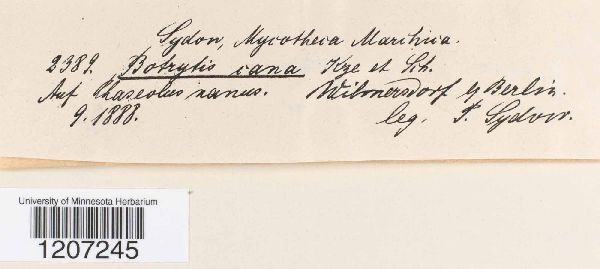 Sydow, Mycotheca Marchica.
2389. Botrytis cana Kze et Sch.
Auf Phaseolus nanus. Wilmersdorf b/Berlin.
9. 1888. leg. P. Sydow.
University of Minnesota Herbarium
1207245